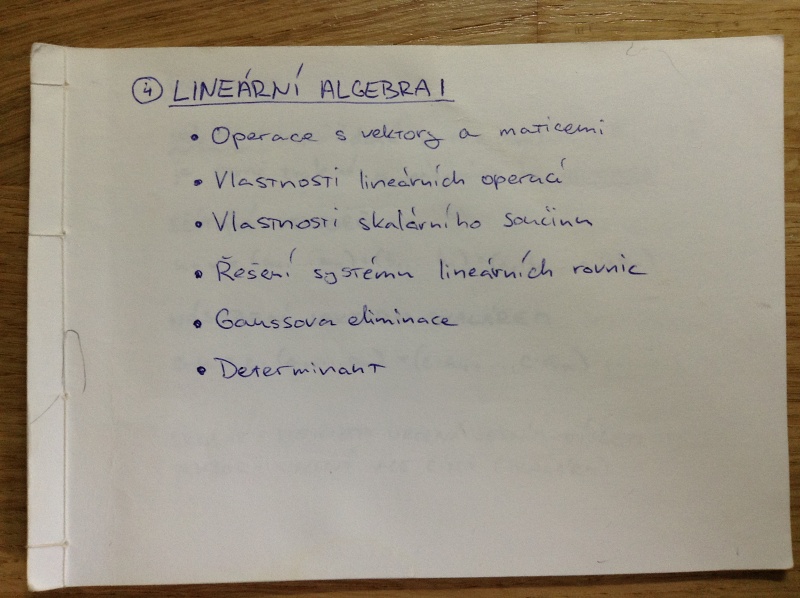 ④ LINEÁRNÍ ALGEBRA I
• Operace s vektory a maticemi
• Vlastnosti lineárních operací
• Vlastnosti skalárního součinu
• Řešení systému lineárních rovnic
• Gaussova eliminace
• Determinant